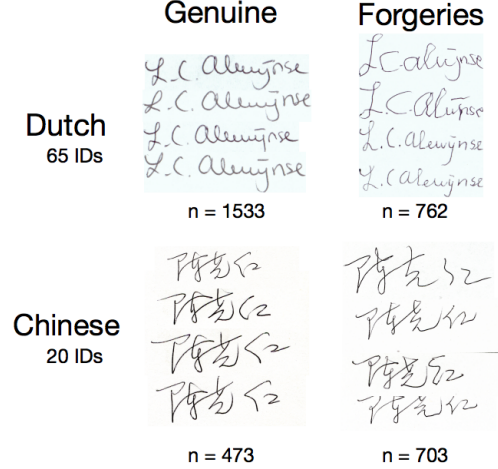 Genuine
Forgeries
Dutch
65 IDs
L.C. Alewijnse
L.C. Alewijnse
L.C. Alewijnse
L.C. Alewijnse
L C alewijnse
L.C. Alewijnse
L.C. Alewijnse
L.C Alewijnse
n = 1533
n = 762
Chinese
20 IDs
陈克红
陈克红
陈克红
陈克红
陈克红
陈克红
陈克红
陈克红
n = 473
n = 703